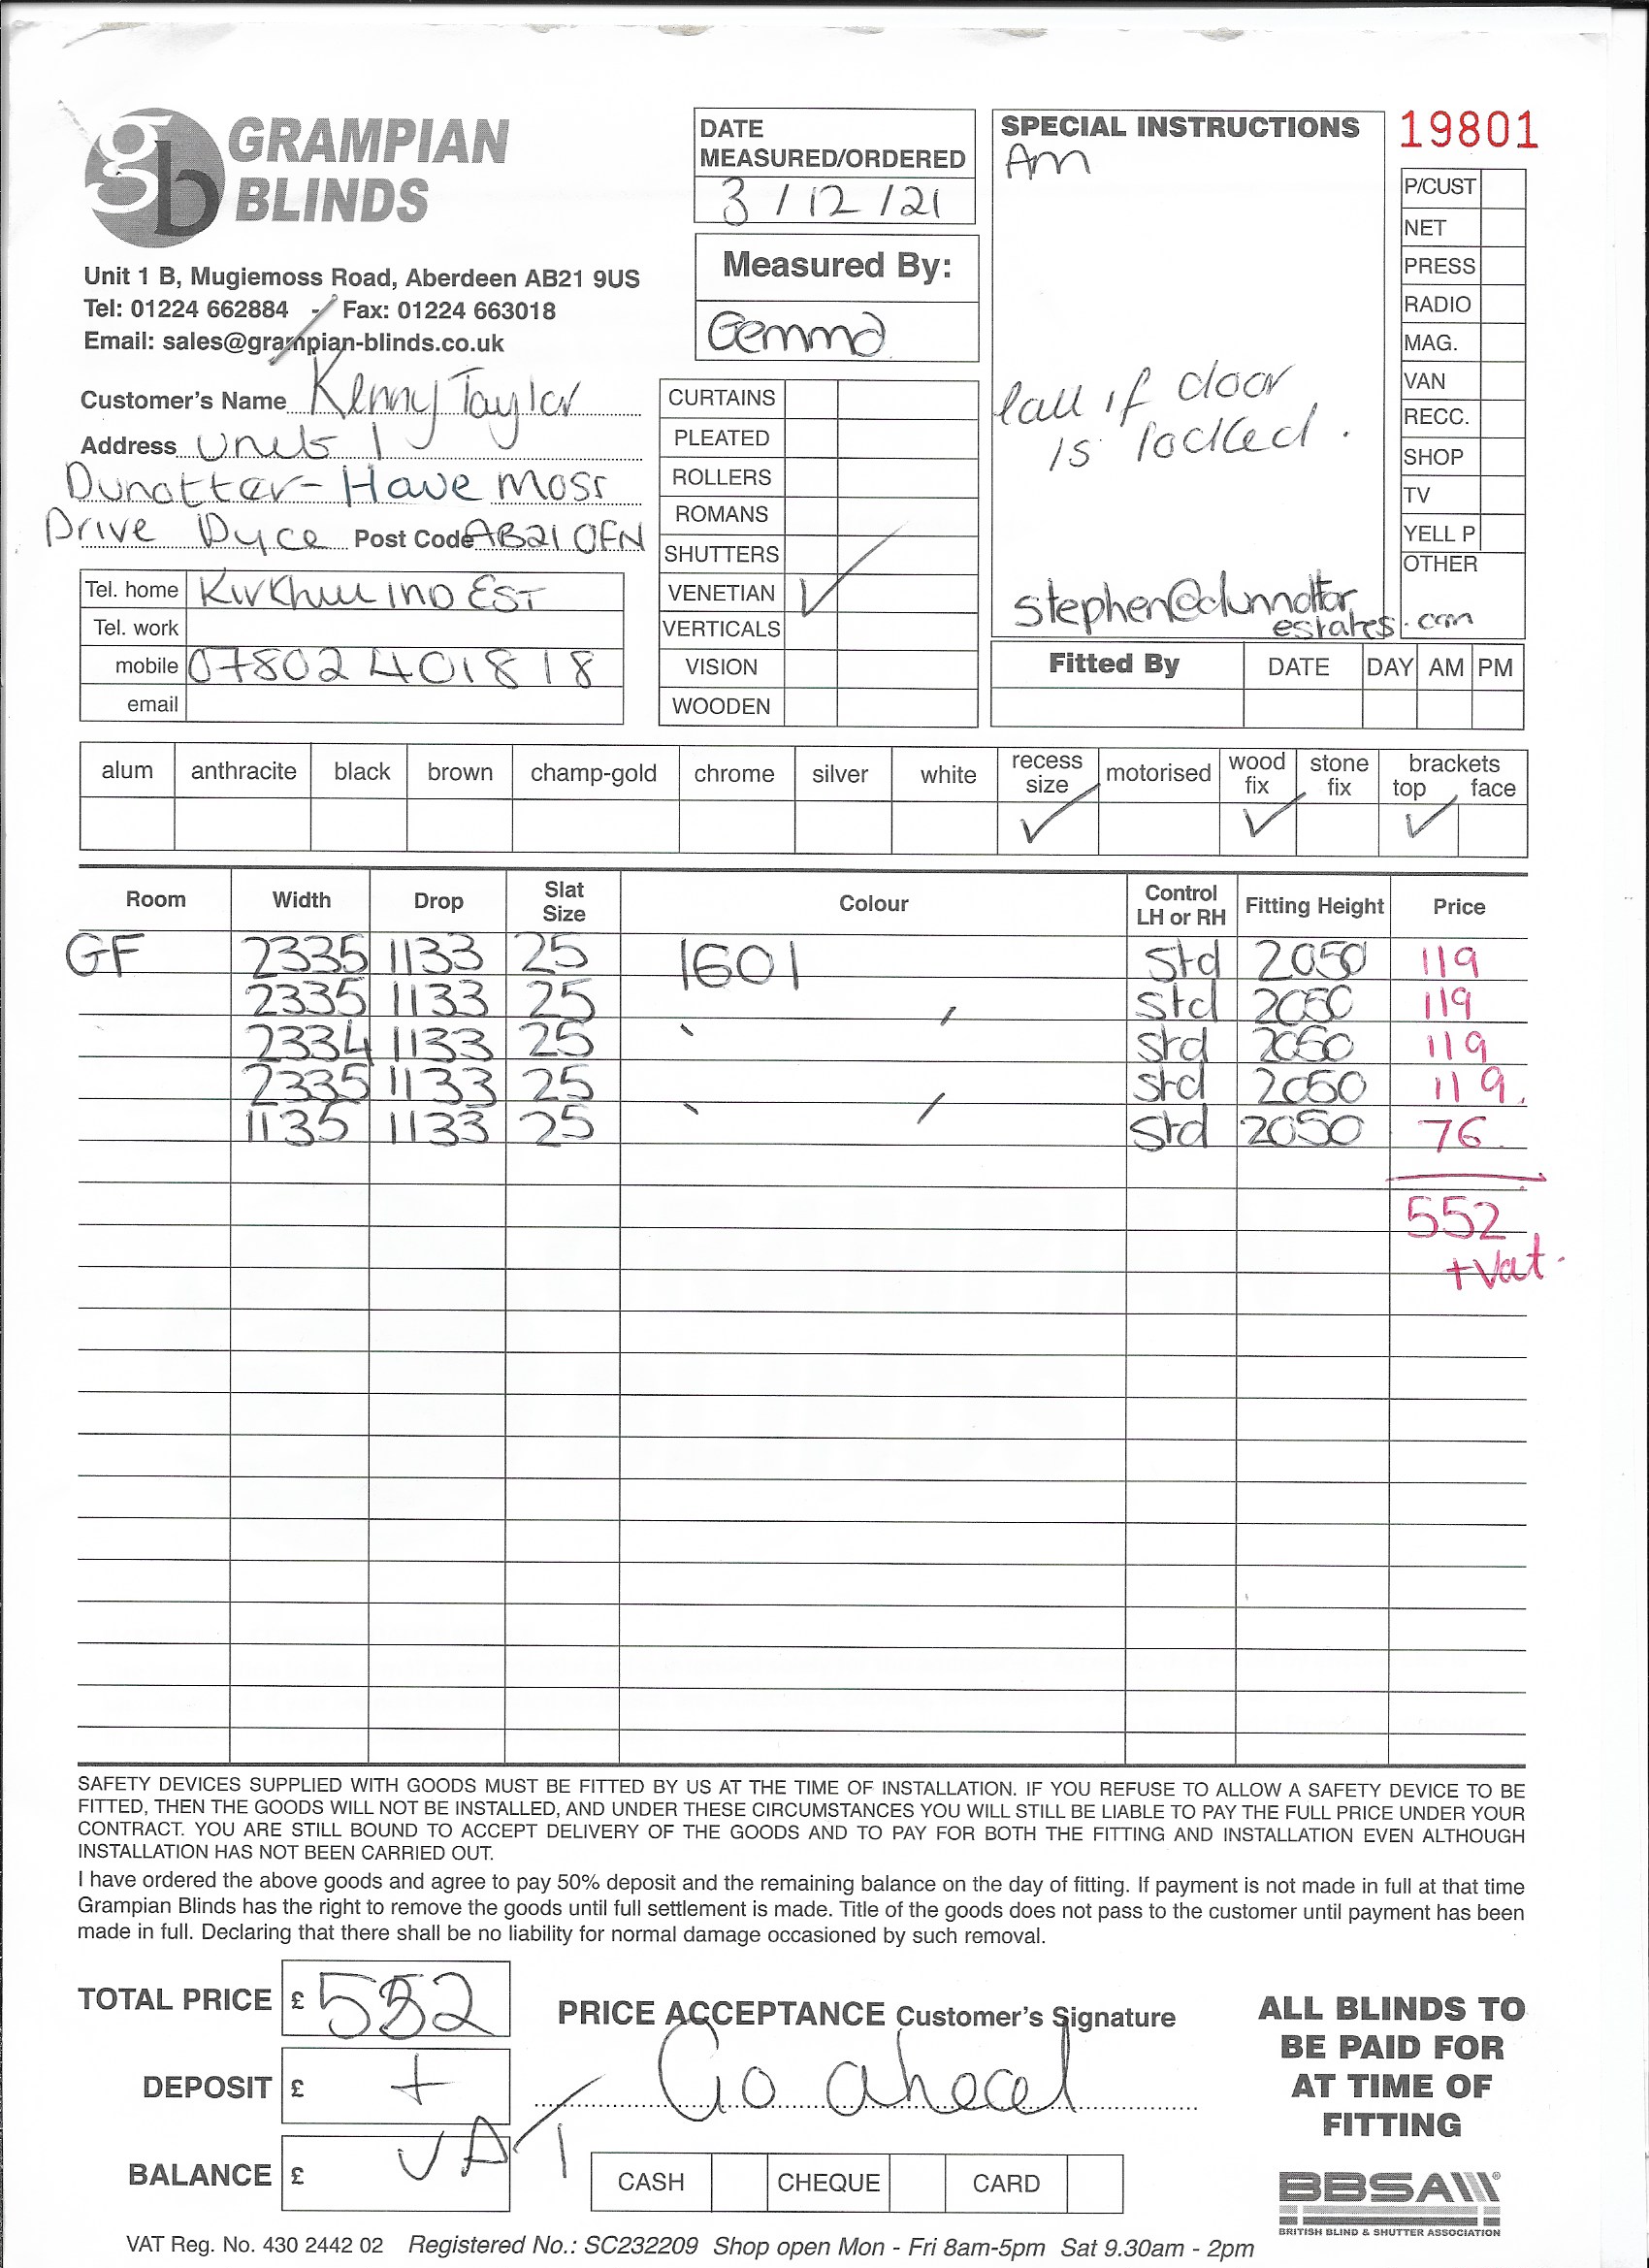 gb GRAMPIAN BLINDS
Unit 1 B, Mugiemoss Road, Aberdeen AB21 9US
Tel: 01224 662884 - Fax: 01224 663018
Email: sales@grampian-blinds.co.uk
DATE MEASURED/ORDERED
3/12/21
Measured By:
Gemma
SPECIAL INSTRUCTIONS
Am
Call if door
is locked.
stephen@dunnottar
estates.com
19801
P/CUST
NET
PRESS
RADIO
MAG.
VAN
RECC.
SHOP
TV
YELL P
OTHER
Customer's Name Kenny Taylor
Address Unit 1
Dunottar Have Moss
Drive Dyce Post Code AB21 0FN
Tel. home Kirkhill IND EST
Tel. work
mobile 07802 401818
email
CURTAINS
PLEATED
ROLLERS
ROMANS
SHUTTERS
VENETIAN ✓
VERTICALS
VISION
WOODEN
Fitted By DATE DAY AM PM
alum anthracite black brown champ-gold chrome silver white recess size motorised wood fix stone fix brackets top face
✓ ✓ ✓
Room Width Drop Slat Size Colour Control LH or RH Fitting Height Price
GF 2335 1133 25 1601 Std 2050 119
2335 1133 25 Std 2050 119
2334 1133 25 Std 2050 119
2335 1133 25 Std 2050 119
1135 1133 25 Std 2050 76
552
+Vat.
SAFETY DEVICES SUPPLIED WITH GOODS MUST BE FITTED BY US AT THE TIME OF INSTALLATION. IF YOU REFUSE TO ALLOW A SAFETY DEVICE TO BE
FITTED, THEN THE GOODS WILL NOT BE INSTALLED, AND UNDER THESE CIRCUMSTANCES YOU WILL STILL BE LIABLE TO PAY THE FULL PRICE UNDER YOUR
CONTRACT. YOU ARE STILL BOUND TO ACCEPT DELIVERY OF THE GOODS AND TO PAY FOR BOTH THE FITTING AND INSTALLATION EVEN ALTHOUGH
INSTALLATION HAS NOT BEEN CARRIED OUT.
I have ordered the above goods and agree to pay 50% deposit and the remaining balance on the day of fitting. If payment is not made in full at that time
Grampian Blinds has the right to remove the goods until full settlement is made. Title of the goods does not pass to the customer until payment has been
made in full. Declaring that there shall be no liability for normal damage occasioned by such removal.
TOTAL PRICE £ 552
DEPOSIT £ +
BALANCE £ VAT
PRICE ACCEPTANCE Customer's Signature
Go ahead
CASH CHEQUE CARD
ALL BLINDS TO
BE PAID FOR
AT TIME OF
FITTING
BBSA
BRITISH BLIND & SHUTTER ASSOCIATION
VAT Reg. No. 430 2442 02 Registered No.: SC232209 Shop open Mon - Fri 8am-5pm Sat 9.30am - 2pm